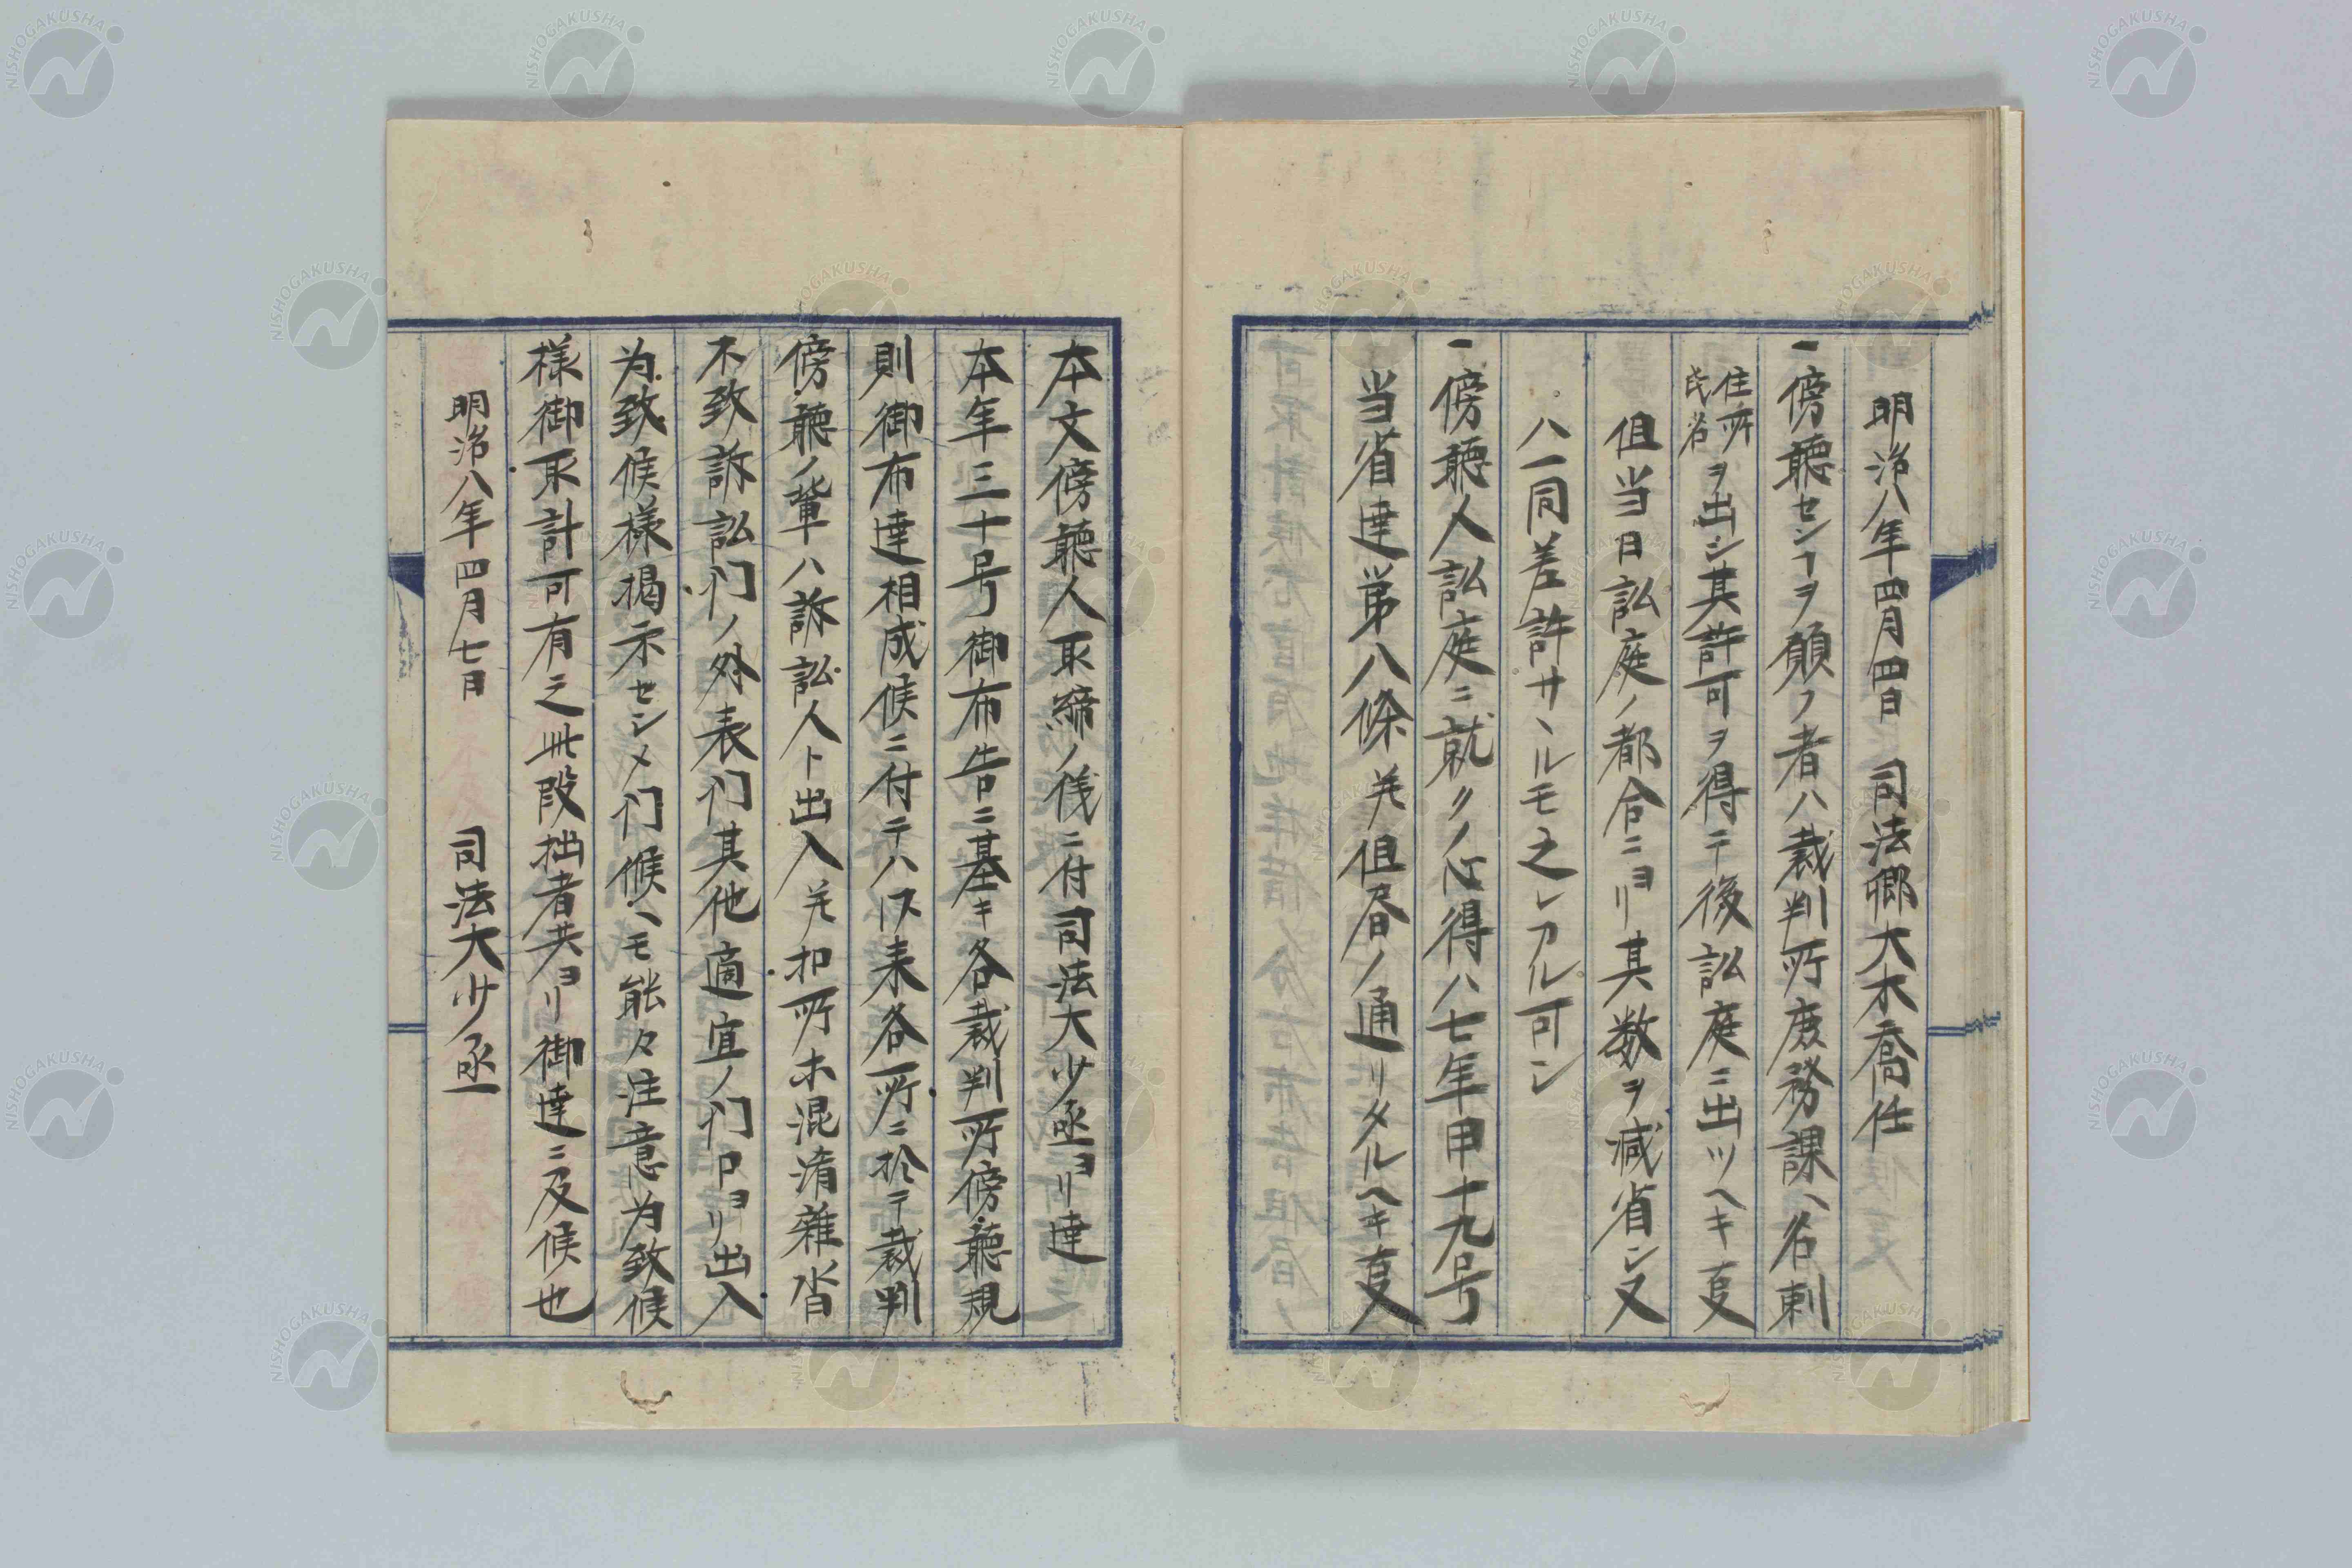 明治八年四月四日　司法卿大木喬任
一傍聴センヿヲ願フ者ハ裁判所庶務課ヘ名刺
住所氏名ヲ出シ其許可ヲ得テ後訟庭ニ出ツヘキ叓
但当日訟庭ノ都合ニヨリ其数ヲ減省シ又
ハ一同差許サヽルモ之レアル可シ
一傍聴人訟庭ニ就クノ心得ハ七年甲十九号
当省達第八條并但書ノ通リタルヘキ叓
本文傍聴人取締ノ儀ニ付司法大少丞ヨリ達
本年三十号御布告ニ基キ各裁判所傍聴規
則御布達相成候ニ付テハ以来各所ニ於テ裁判
傍聴ノ輩ハ訴訟人ト出入并扣所ホ混淆雑沓
不致訴訟门ノ外表门其他適宜ノ门口ヨリ出入
为致候様掲示セシメ门候ヘモ能々注意为致候
様御取計可有之此段拙者共ヨリ御達ニ及候也
明治八年四月七日　司法大少丞
NISHOGAKUSHA